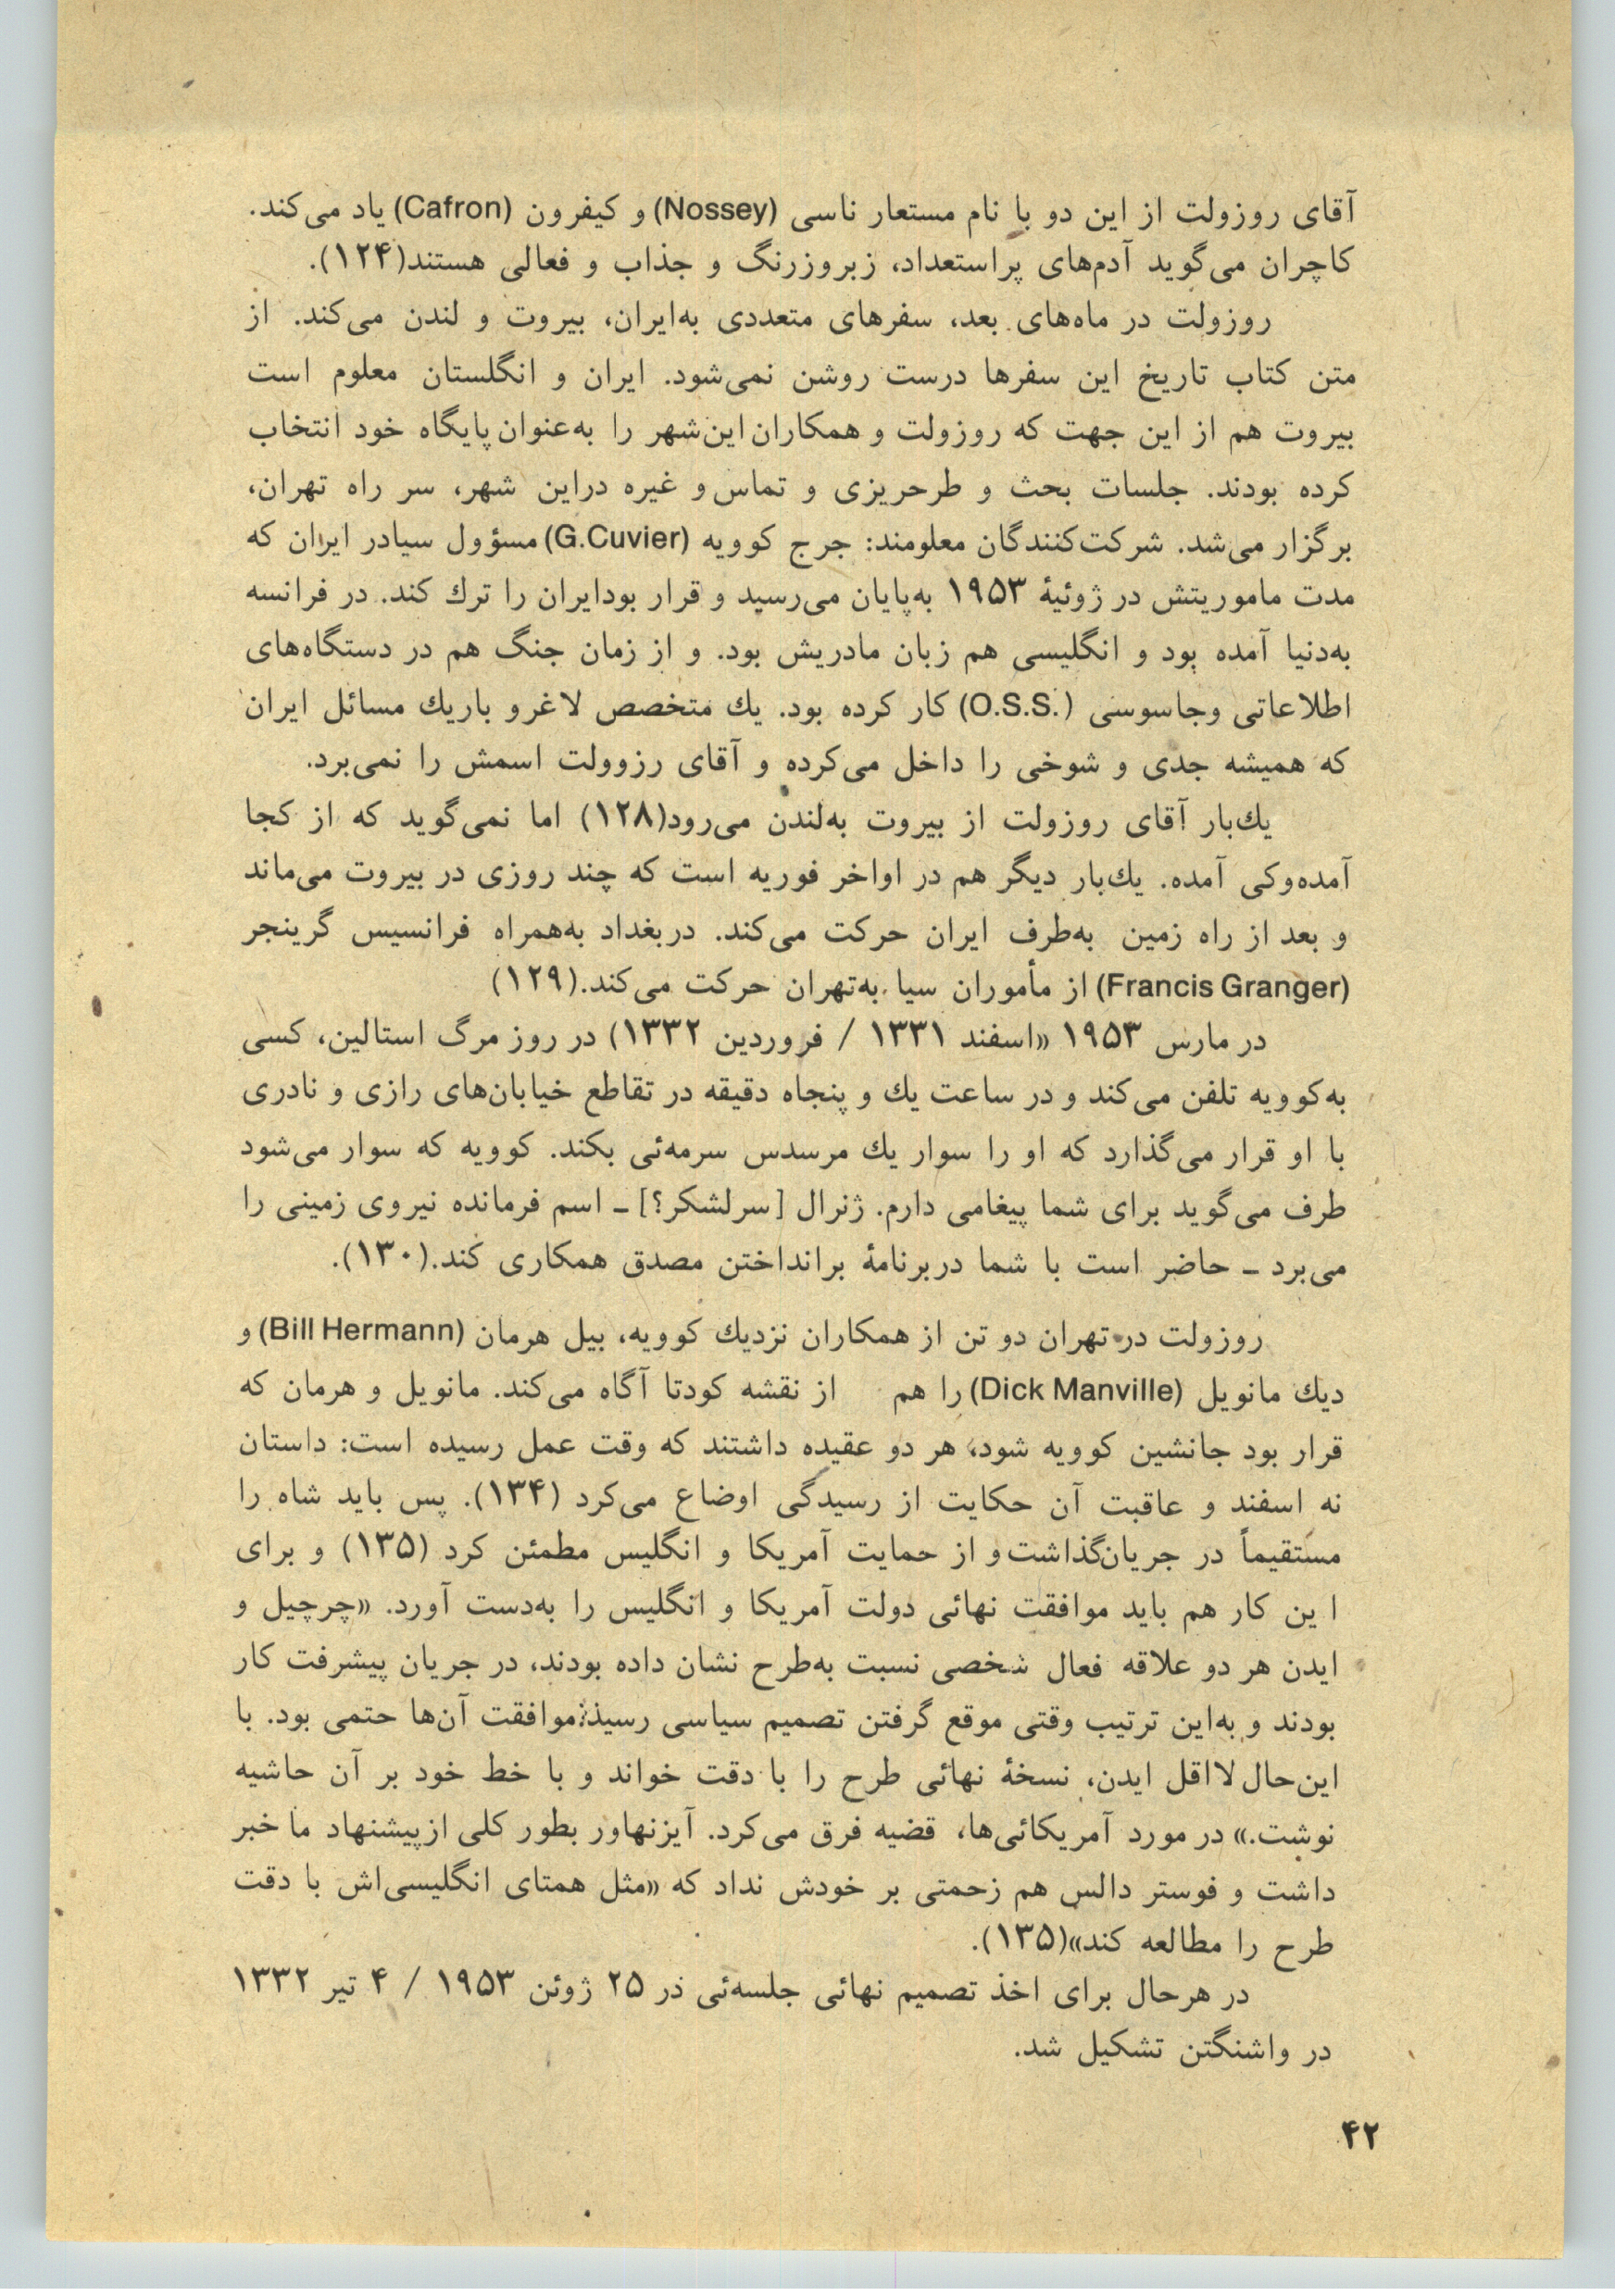 آقای روزولت از این دو با نام مستعار ناسی (Nossey) و کیفرون (Cafron) یاد می‌کند.
کاچران می‌گوید آدم‌های پراستعداد، زبروزرنگ و جذاب و فعالی هستند(۱۲۴).
روزولت در ماه‌های بعد، سفرهای متعددی به‌ایران، بیروت و لندن می‌کند. از
متن کتاب تاریخ این سفرها درست روشن نمی‌شود. ایران و انگلستان معلوم است
بیروت هم از این جهت که روزولت و همکاران این‌شهر را به‌عنوان پایگاه خود انتخاب
کرده بودند. جلسات بحث و طرحریزی و تماس و غیره دراین شهر، سر راه تهران،
برگزار می‌شد. شرکت‌کنندگان معلومند: جرج کوویه (G.Cuvier) مسؤول سیادر ایران که
مدت ماموریتش در ژوئیهٔ ۱۹۵۳ به‌پایان می‌رسید و قرار بودایران را ترك کند. در فرانسه
به‌دنیا آمده بود و انگلیسی هم زبان مادریش بود. و از زمان جنگ هم در دستگاه‌های
اطلاعاتی وجاسوسی (O.S.S.) کار کرده بود. یك متخصص لاغرو باریك مسائل ایران
که همیشه جدی و شوخی را داخل می‌کرده و آقای رزوولت اسمش را نمی‌برد.
یك‌بار آقای روزولت از بیروت به‌لندن می‌رود(۱۲۸) اما نمی‌گوید که از کجا
آمده‌وکی آمده. یك‌بار دیگر هم در اواخر فوریه است که چند روزی در بیروت می‌ماند
و بعد از راه زمین به‌طرف ایران حرکت می‌کند. دربغداد به‌همراه فرانسیس گرینجر
(Francis Granger) از مأموران سیا به‌تهران حرکت می‌کند.(۱۲۹)
در مارس ۱۹۵۳ «اسفند ۱۳۳۱ / فروردین ۱۳۳۲) در روز مرگ استالین، کسی
به‌کوویه تلفن می‌کند و در ساعت یك و پنجاه دقیقه در تقاطع خیابان‌های رازی و نادری
با او قرار می‌گذارد که او را سوار یك مرسدس سرمه‌ئی بکند. کوویه که سوار می‌شود
طرف می‌گوید برای شما پیغامی دارم. ژنرال [سرلشکر؟] ـ اسم فرمانده نیروی زمینی را
می‌برد ـ حاضر است با شما دربرنامهٔ برانداختن مصدق همکاری کند.(۱۳۰).
روزولت در تهران دو تن از همکاران نزدیك کوویه، بیل هرمان (Bill Hermann) و
دیك مانویل (Dick Manville) را هم از نقشه کودتا آگاه می‌کند. مانویل و هرمان که
قرار بود جانشین کوویه شود، هر دو عقیده داشتند که وقت عمل رسیده است: داستان
نه اسفند و عاقبت آن حکایت از رسیدگی اوضاع می‌کرد (۱۳۴). پس باید شاه را
مستقیماً در جریان‌گذاشت و از حمایت آمریکا و انگلیس مطمئن کرد (۱۳۵) و برای
ا ین کار هم باید موافقت نهائی دولت آمریکا و انگلیس را به‌دست آورد. «چرچیل و
ایدن هر دو علاقه فعال شخصی نسبت به‌طرح نشان داده بودند، در جریان پیشرفت کار
بودند و به‌این ترتیب وقتی موقع گرفتن تصمیم سیاسی رسید: موافقت آن‌ها حتمی بود. با
این‌حال لااقل ایدن، نسخهٔ نهائی طرح را با دقت خواند و با خط خود بر آن حاشیه
نوشت.» در مورد آمریکائی‌ها، قضیه فرق می‌کرد. آیزنهاور بطور کلی ازپیشنهاد ما خبر
داشت و فوستر دالس هم زحمتی بر خودش نداد که «مثل همتای انگلیسی‌اش با دقت
طرح را مطالعه کند»(۱۳۵).
در هرحال برای اخذ تصمیم نهائی جلسه‌ئی در ۲۵ ژوئن ۱۹۵۳ / ۴ تیر ۱۳۳۲
در واشنگتن تشکیل شد.
۴۲